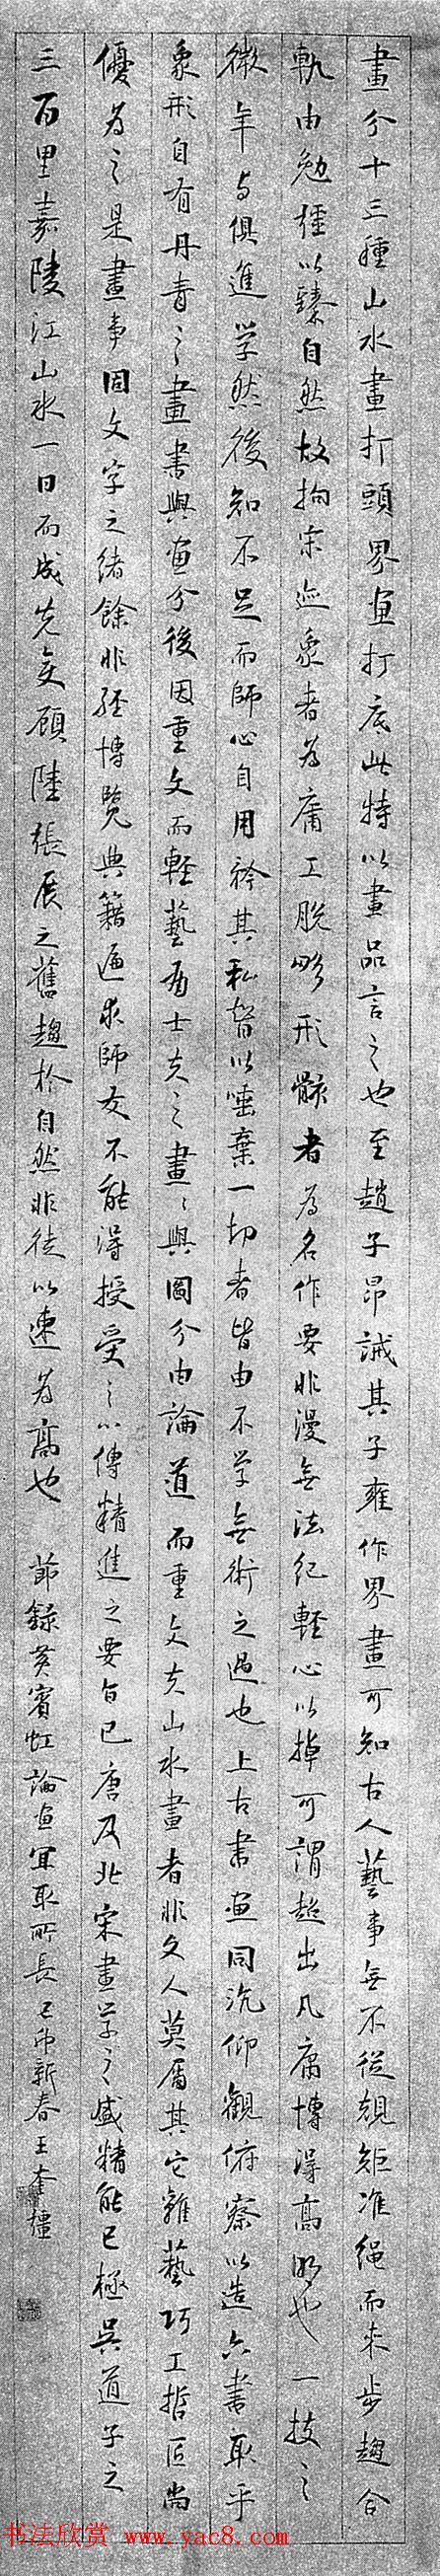 畫分十三種山水畫打頭界画打底此特以畫品言之也至趙子昂誡其子雍作界畫可知古人藝事無不從規矩準绳而来步趨合
軌由勉强以臻自然故拘宗迹象者為庸工脱略形骸者為名作要非漫無法纪輕心以掉可謂超出凡庸博得高明也一技之
微年与俱進学然後知不足而師心自用矜其私智以唾棄一切者皆由不学無術之過也上古書画同流仰觀俯察以造六書取乎
象形自有丹青之畫書與画分後因重文而輕藝有士夫之畫畫與圖分由論道而重文夫山水畫者非文人莫屬其它雜藝巧工哲匠尚
優為之是畫事固文字之绪餘非经博覽典籍遍求師友不能得授受之心傳精進之要旨已唐及北宋畫学之盛精能已極吴道子之
三百里嘉陵江山水一日而成先变顧陸張展之舊趨於自然非徒以速為高也 節録黄賓虹論画宜取所長 己卯新春王奎
书法欣赏 www.yac8.com